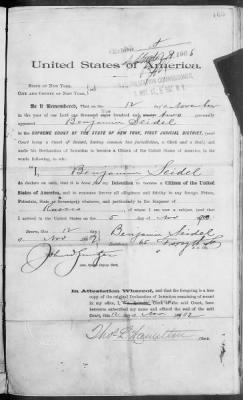 United States of America.
STATE OF NEW YORK,
CITY AND COUNTY OF NEW YORK,
Be it Remembered, That on the 12 day of November
in the year of our Lord one thousand nine hundred and two
appeared Benjamin Seidel
in the SUPREME COURT OF THE STATE OF NEW YORK, FIRST JUDICIAL DISTRICT, (said
Court being a Court of Record, having common law jurisdiction, a Clerk and a Seal) and
made his Declaration of Intention to become a Citizen of the United States of America, in the
words following, to wit:
"I, Benjamin Seidel
do declare on oath, that it is bona fide my Intention to become a Citizen of the United
States of America, and to renounce forever all allegiance and fidelity to any foreign Prince,
Potentate, State or Sovereignty whatever, and particularly to the Emperor of
Russia of whom I am now a subject, and that
I arrived in the United States on the 5 day of Nov
Sworn, this 12 day
of Nov 1902 Benjamin Seidel
65 Forsyth St
In Attestation Whereof, and that the foregoing is a true
copy of the original Declaration of Intention remaining of record
in my office, I, Clerk of the said Court, have
hereunto subscribed my name and affixed the seal of the said
Court, this 12 day of Nov 1902
Thos. L. Hamilton Clerk.